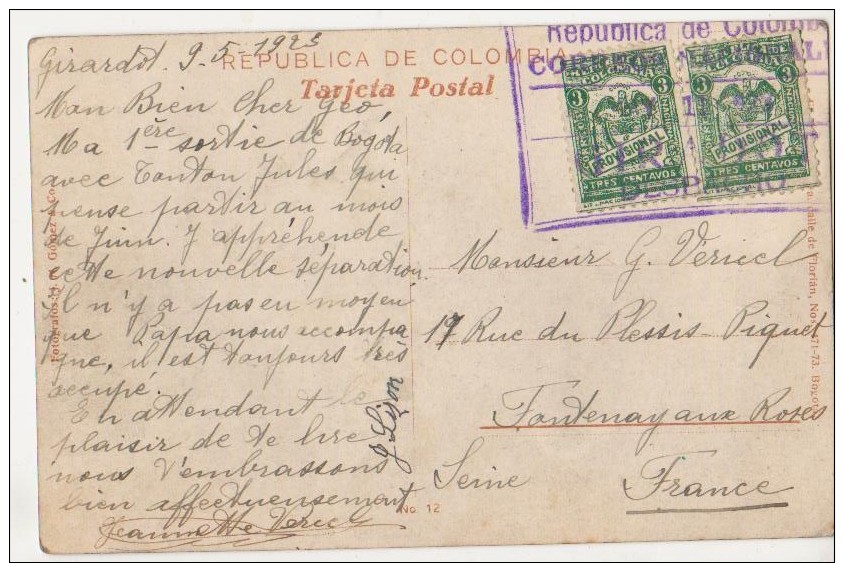 Girardot. 9-5-1923
REPUBLICA DE COLOMBIA
Tarjeta Postal
Mon Bien Cher Géo,
Ma 1ère sortie de Bogota
avec Tonton Jules qui
pense partir au mois
de Juin. J'appréhende
cette nouvelle séparation.
Il n'y a pas eu moyen
que Papa nous accompa
gne, il est toujours très
occupé.
En attendant le
plaisir de te lire
nous t'embrassons
bien affectueusement
Jeannette Vericel
No. 12
República de Colomb
3 3
PROVISIONAL
TRES CENTAVOS
3 3
PROVISIONAL
TRES CENTAVOS
Monsieur G. Véricel
17 Rue du Plessis-Piquet
Fontenay aux Roses
Seine
France
Gómez
Calle de Florián, No
71-73. Bogotá